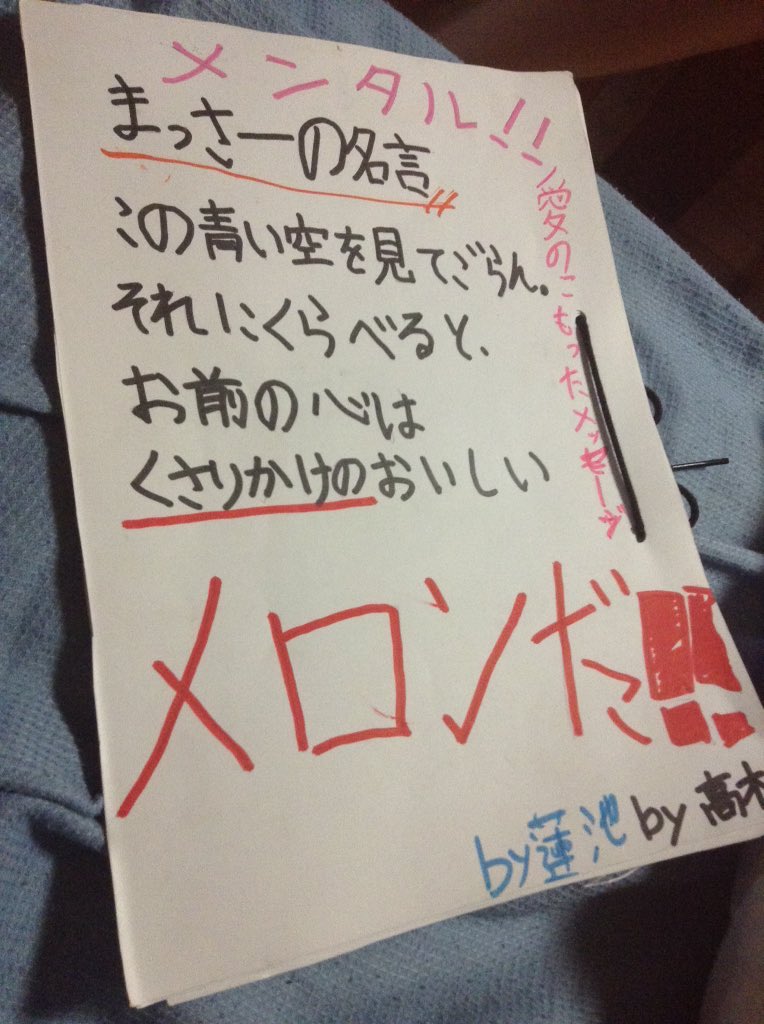 メンタル!!
まっさーの名言
この青い空を見てごらん。
それにくらべると、
お前の心は
くさりかけのおいしい
メロンだ!!
愛のこもったメッセージ
by蓮池 by高木